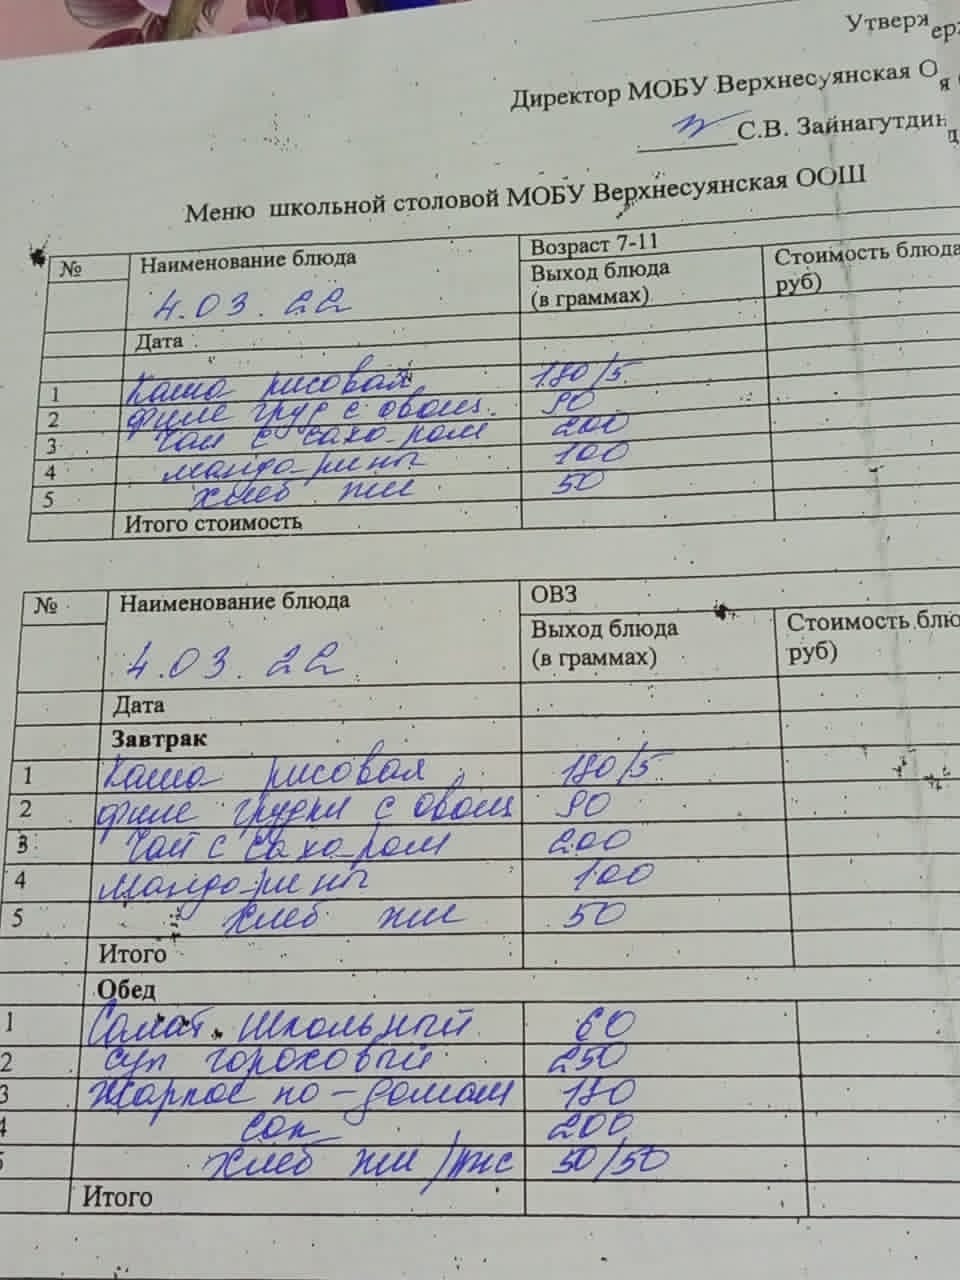 Утверж
Директор МОБУ Верхнесуянская О
С.В. Зайнагутдин
Меню школьной столовой МОБУ Верхнесуянская ООШ
№ Наименование блюда Возраст 7-11
Выход блюда (в граммах) Стоимость блюда руб)
4.03.22
Дата
1 Каша рисовая 180/5
2 филе груд с овощ. 90
3 Чай с сахаром 200
4 мандарины 100
5 хлеб пш 50
Итого стоимость
№ Наименование блюда ОВЗ
Выход блюда (в граммах) Стоимость блю руб)
4.03.22
Дата
Завтрак
1 Каша рисовая 180/5
2 филе грудки с овощ 90
3 Чай с сахаром 200
4 мандарины 100
5 хлеб пш 50
Итого
Обед
1 Салат школьный 60
2 суп гороховый 250
3 Жаркое по-домаш 180
4 сок 200
5 хлеб пш/рж 50/50
Итого